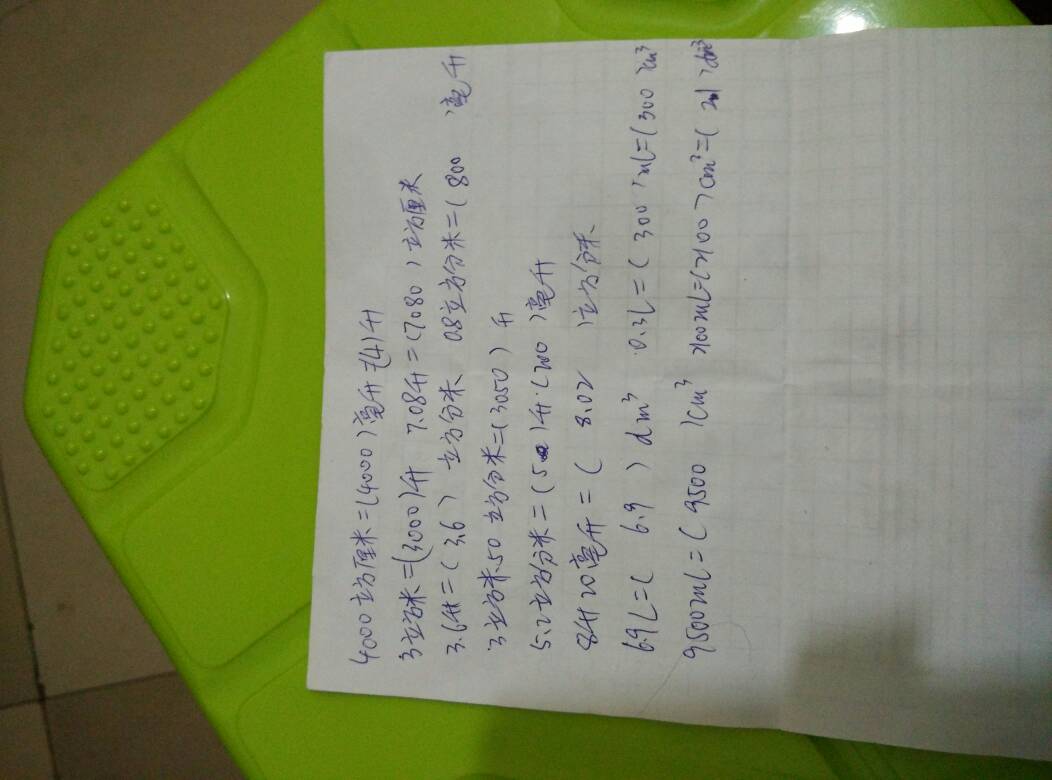 4000立方厘米=(4000)毫升=(4)升
3立方米=(3000)升 7.08升=(7080)立方厘米
3.6升=(3.6)立方分米 0.8立方分米=(800 )毫升
3立方米50立方分米=(3050)升
5.2立方分米=(5)升(200)毫升
8升20毫升=( 8.02 )立方分米
6.9L=( 6.9 )dm³ 0.3L=(300)mL=(300)cm³
9500mL=( 9500 )cm³ 2100mL=(2100)cm³=(2.1)dm³